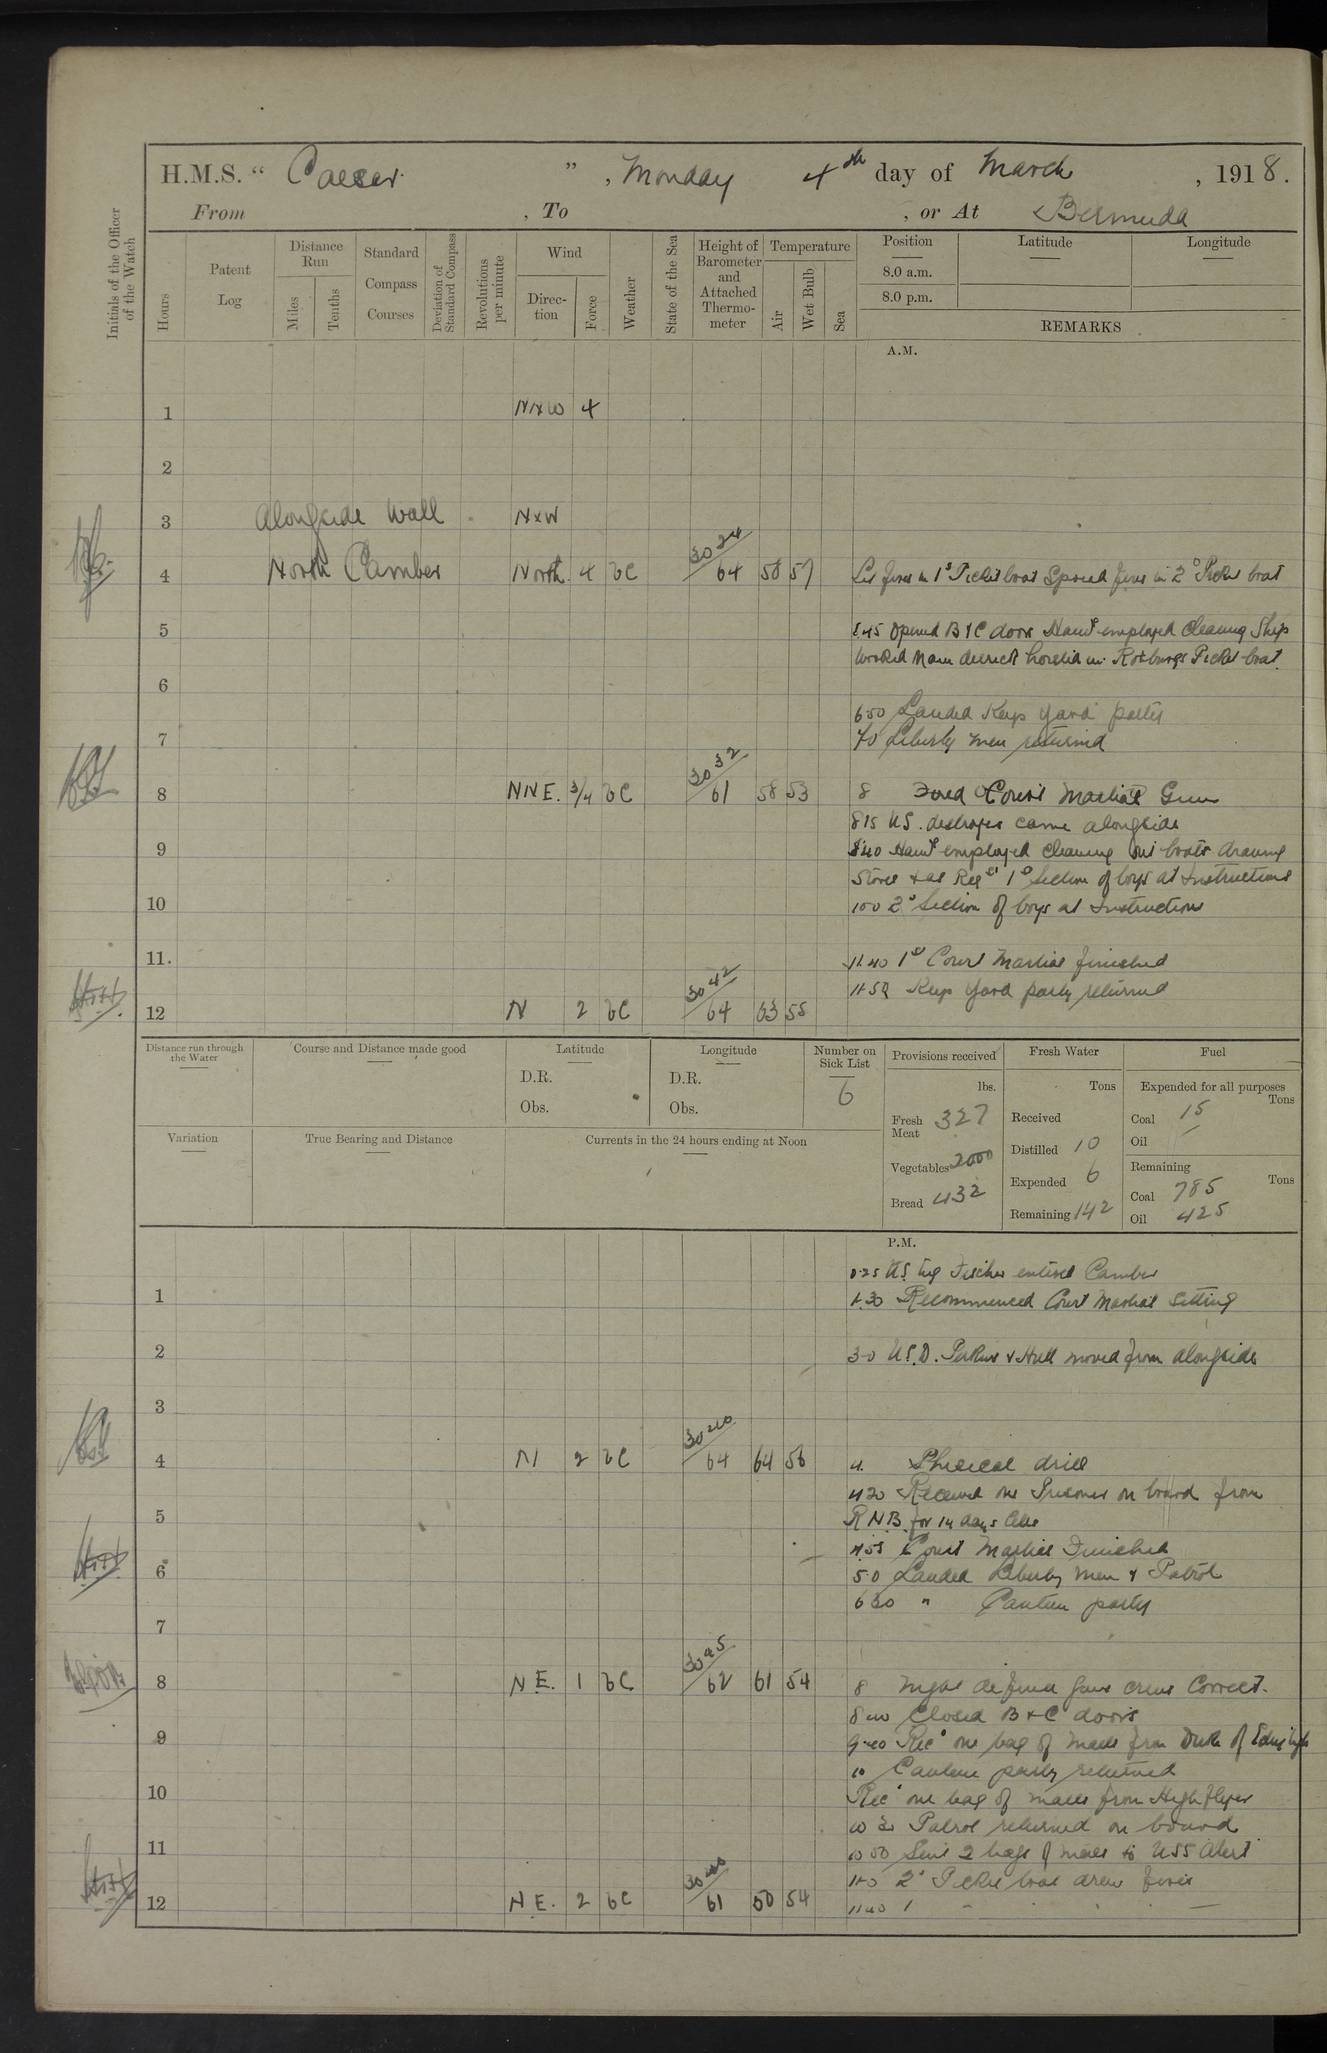 H.M.S. " Caesar ", Monday 4th day of March, 1918.
From , To , or At Bermuda
Initials of the Officer of the Watch
Hours
Patent Log
Distance Run
Miles
Tenths
Standard Compass Courses
Deviation of Standard Compass
Revolutions per minute
Wind
Direction
Force
Weather
State of the Sea
Height of Barometer and Attached Thermometer
Temperature
Air
Wet Bulb
Sea
Position
8.0 a.m.
8.0 p.m.
Latitude
Longitude
REMARKS
A.M.
1 NxW 4
2
3 Alongside Wall NxW
4 North Camber North 4 bC 30 24/64 58 57 Lit fires in 1st Picket boat Spread fires in 2d Picket boat
5 5.45 Opened B & C doors Hands employed Cleaning Ship
Worked Main derrick hoisted in Picket boat
6
6 50 Landed Keeps Yard party
7 7 0 Liberty men returned
8 NNE. 3/4 bC 30 32/61 58 53 8 Fired Court Martial Gun
8 15 U.S. destroyer came alongside
9 8 40 Hands employed cleaning out boats drawing
Stores & as Reqd 1st Section of boys at Instructions
10 10 0 2d Section of boys at Instructions
11. 11.40 1st Court Martial finished
11.50 Keeps Yard party returned
12 N 2 bC 30 42/64 63 55
Distance run through the Water
Course and Distance made good
Latitude
D.R.
Obs.
Longitude
D.R.
Obs.
Number on Sick List
6
Provisions received
lbs.
Fresh Meat 327
Vegetables 2000
Bread 432
Fresh Water
Tons
Received
Distilled 10
Expended 6
Remaining 142
Fuel
Expended for all purposes
Tons
Coal 15
Oil /
Remaining
Tons
Coal 785
Oil 425
Variation
True Bearing and Distance
Currents in the 24 hours ending at Noon
P.M.
0.25 U.S. tug entered Camber
1 1.30 Recommenced Court Martial Sitting
2 3-0 U.S.D. Perkins & Hull moved from alongside
3
4 N 2 bC 30 40/64 64 56 4. Physical drill
4 20 Received one Prisoner on board from
5 R.N.B. for 14 days Cells
4.55 Court Martial Finished
6 5 0 Landed Liberty Men & Patrol
6 30 " Canteen party
7
8 N E. 1 bC 30 45/62 61 54 8 Night defence Guns crews Correct.
8 Closed B & C doors
9 Recd one bag of mails from Duke of Edinburgh
10 Canteen party returned
10 Recd one bag of mails from Highflyer
10 30 Patrol returned on board
11 10 50 Sent 2 bags of mails to USS Alert
11-0 2d Picket boat drew fires
12 N E. 2 bC 30 40/61 50 54 11 40 1 " " " "